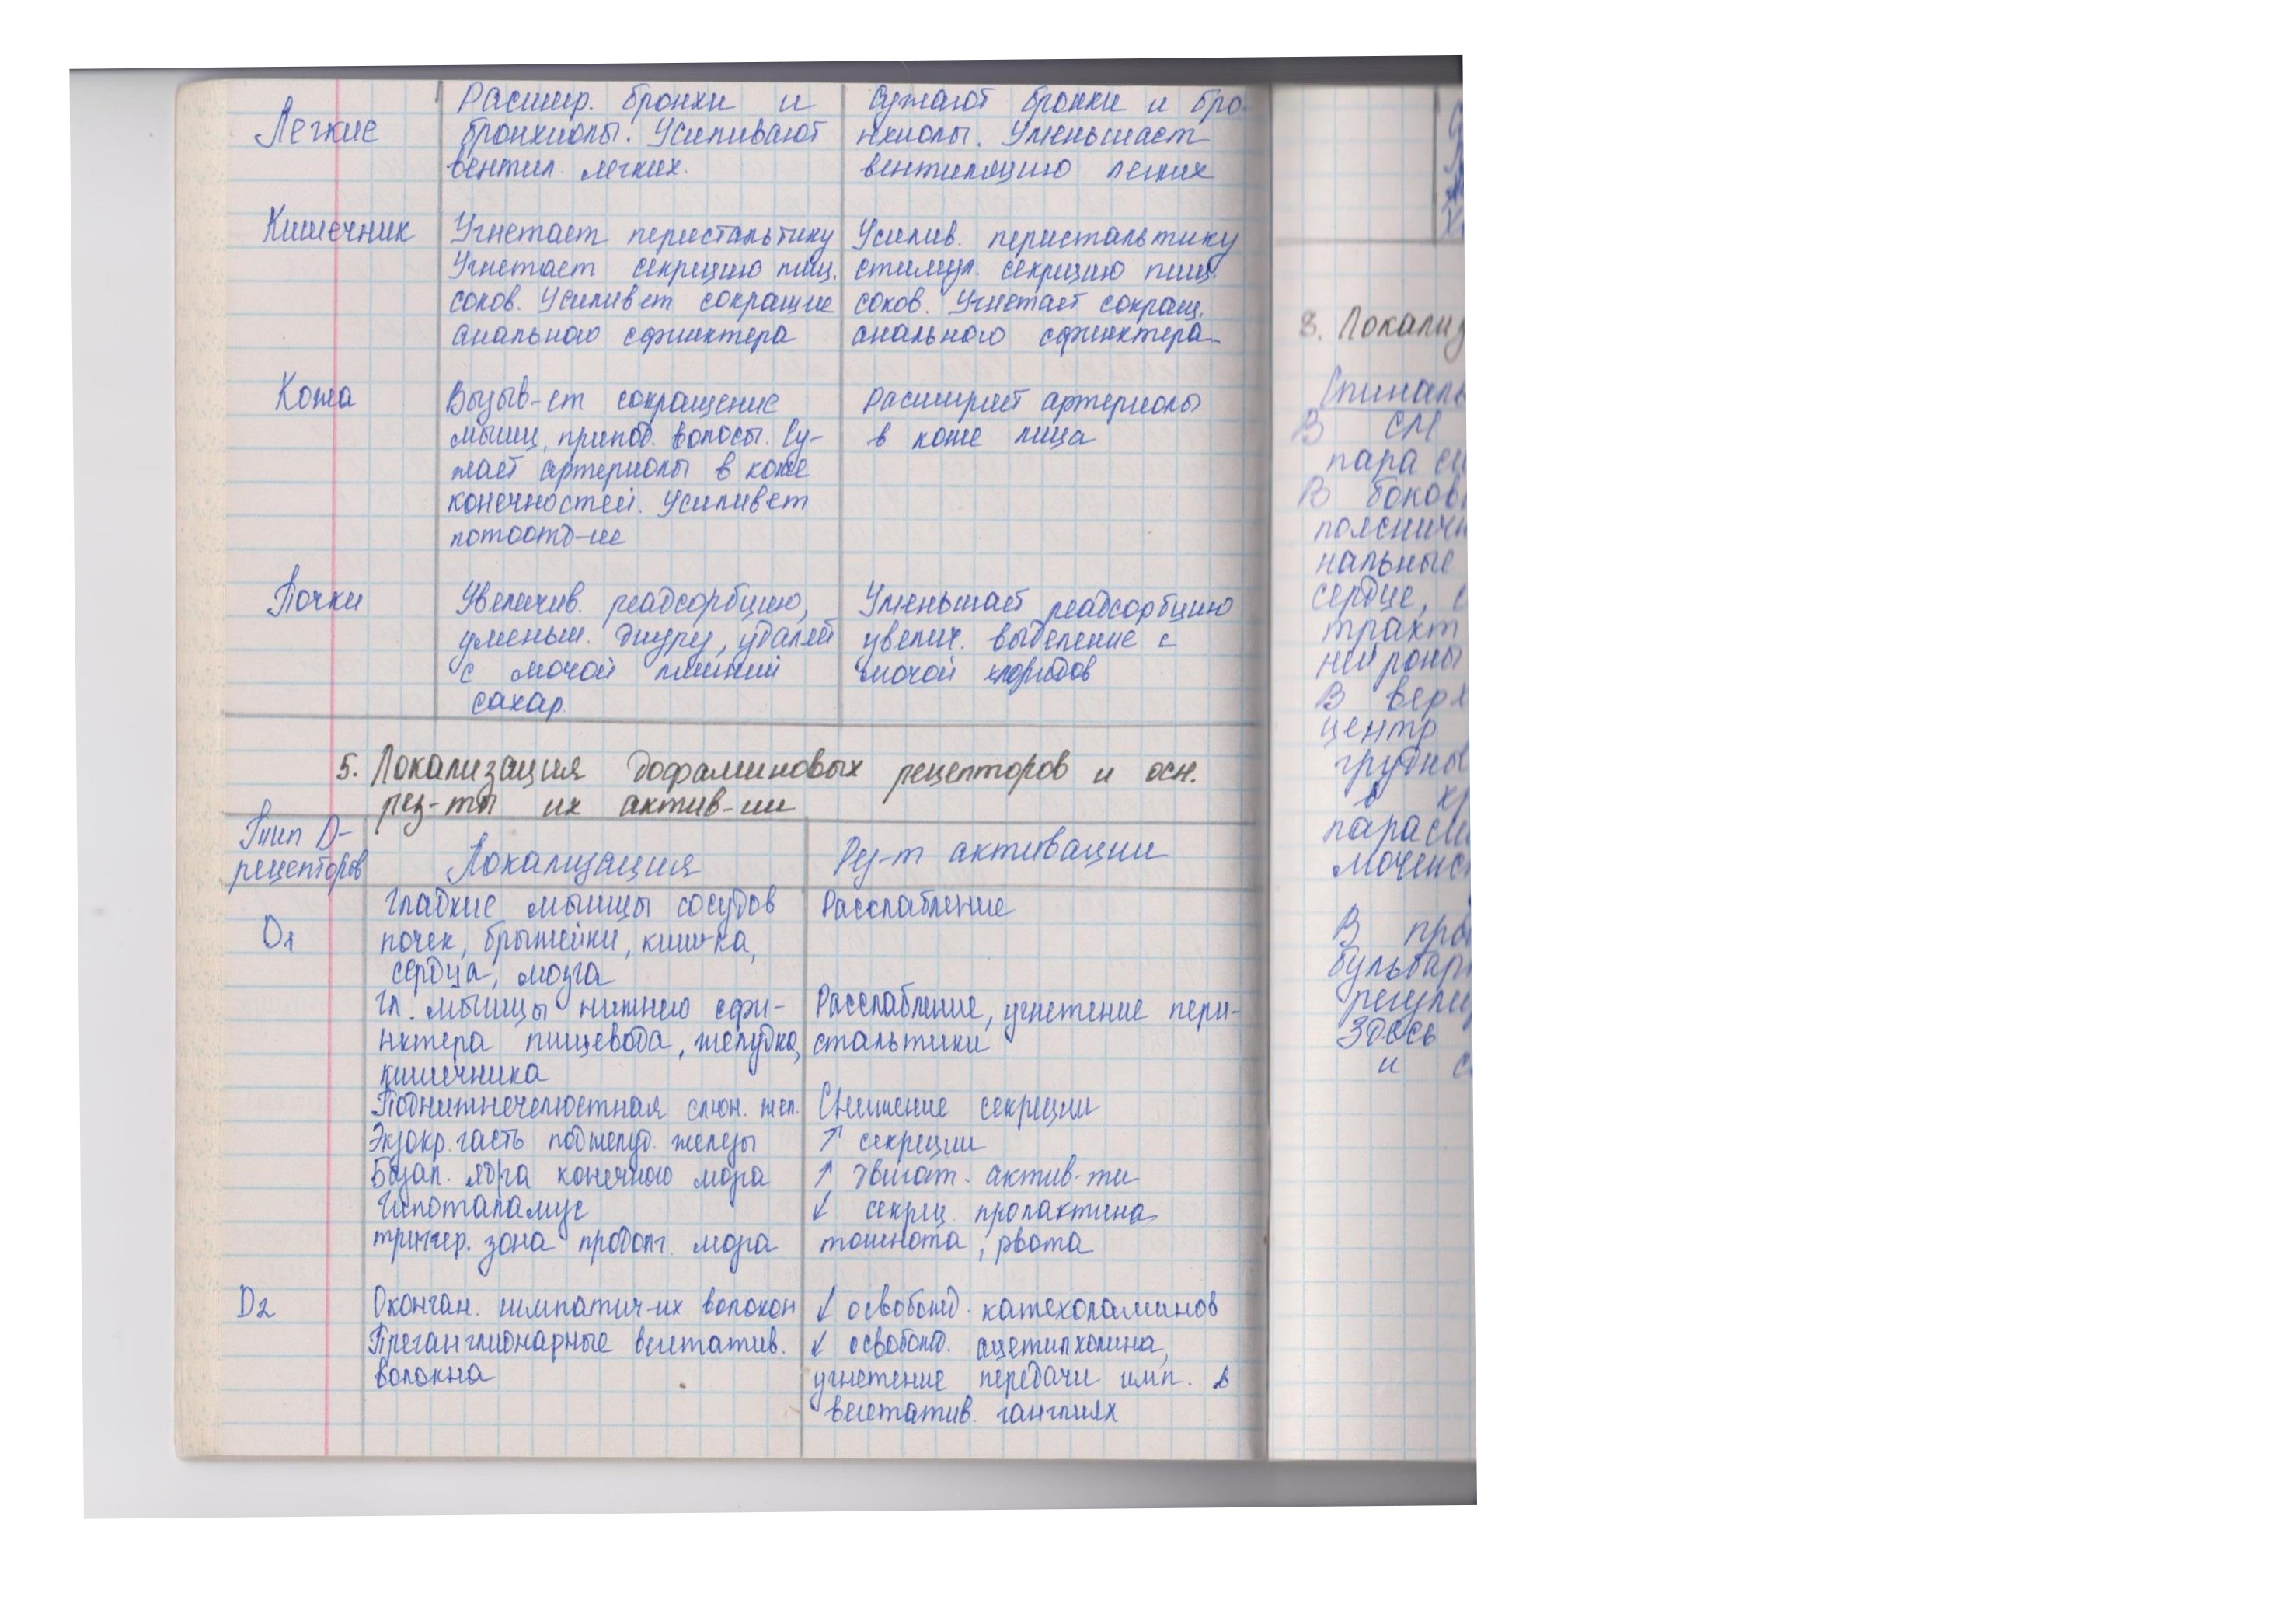 Расшир. бронхи и
бронхиолы. Усиливают
вентил. легких.
Сужают бронхи и бро-
нхиолы. Уменьшает
вентиляцию легких
Легкие
Кишечник
Угнетает перистальтику
Угнетает секрецию пищ.
соков. Усиливет сокращие
анального сфинктера
Усилив. перистальтику
стимул. секрецию пищ.
соков. Угнетает сокращ.
анального сфинктера
Кожа
Вызыв-ет сокращение
мышц, припод. волосы. Су-
жает артериолы в коже
конечностей. Усиливет
потоотд-ие
Расширяет артериолы
в коже лица
Почки
Увеличив. реадсорбцию,
уменьш. диурез, удаляет
с мочой лишний
сахар
Уменьшает реадсорбцию
увелич. выделение с
мочой хлоридов
5. Локализация дофаминовых рецепторов и осн.
рез-ты их актив-ии
Тип D-
рецепторов
Локализация
Рез-т активации
D1
Гладкие мышцы сосудов
почек, брыжейки, киш-ка,
сердца, мозга
Расслабление
Гл. мышцы нижнего сфи-
нктера пищевода, желудка,
кишечника
Расслабление, угнетение пери-
стальтики
Поднижнечелюстная слюн. жел.
Снижение секреции
Экзокр. часть поджелуд. железы
↑ секреции
Базал. ядра конечного мозга
↑ двигат. актив-ти
Гипоталамус
↓ секрец. пролактина
триггер. зона продолг. мозга
тошнота, рвота
D2
Окончан. симпатич-их волокон
↓ освобожд. катехоламинов
Преганглионарные вегетатив.
волокна
↓ освобожд. ацетилхолина,
угнетение передачи имп. в
вегетатив. ганглиях
8. Локализ
Спиналь
В СМ
пара си
В боков
пояснич
нальные
сердце,
тракт
нейроны
В верх
центр
грудно
в кр
параси
моченс
В про
бульбар
регули
Здесь
и с